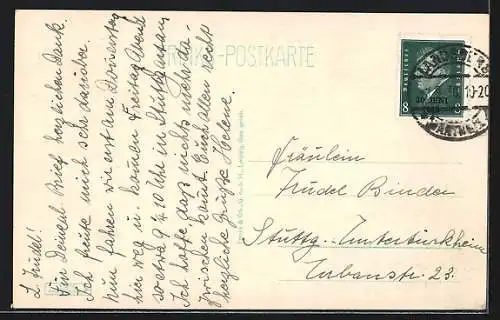 L. Trudel!
Für Deinen Brief herzlichen Dank.
Ich freute mich sehr darüber.
Nun fahren wir erst am Donnerstag
hier weg u. kommen Freitag Abend
so etwa 9 10 Uhr in Stuttgart an.
Ich hoffe daß nichts mehr da-
zwischen kommt. Euch allen recht
herzliche Grüße Helene.
POSTKARTE
Deutsches Reich
8
8
30. JUNI
1930
10-20
Fräulein
Trudel Binder
Stuttg.-Untertürkheim
Urbanstr. 23.